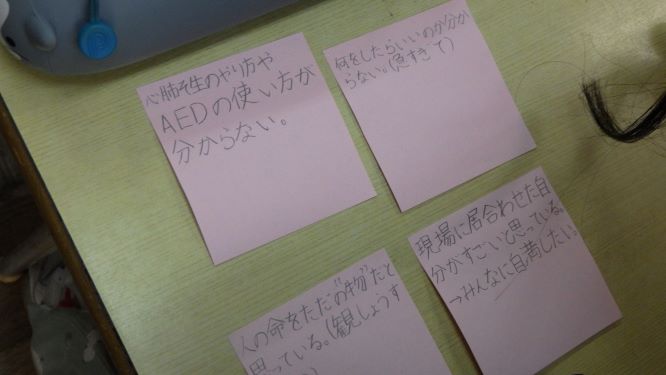 心肺そ生のやり方や
AEDの使い方が
分からない。
何をしたらいいのか分か
らない。(急すぎて)
人の命をただの"物"だと
思っている。(観しょうす
現場に居合わせた自
分がすごいと思っている。
→みんなに自満したい。